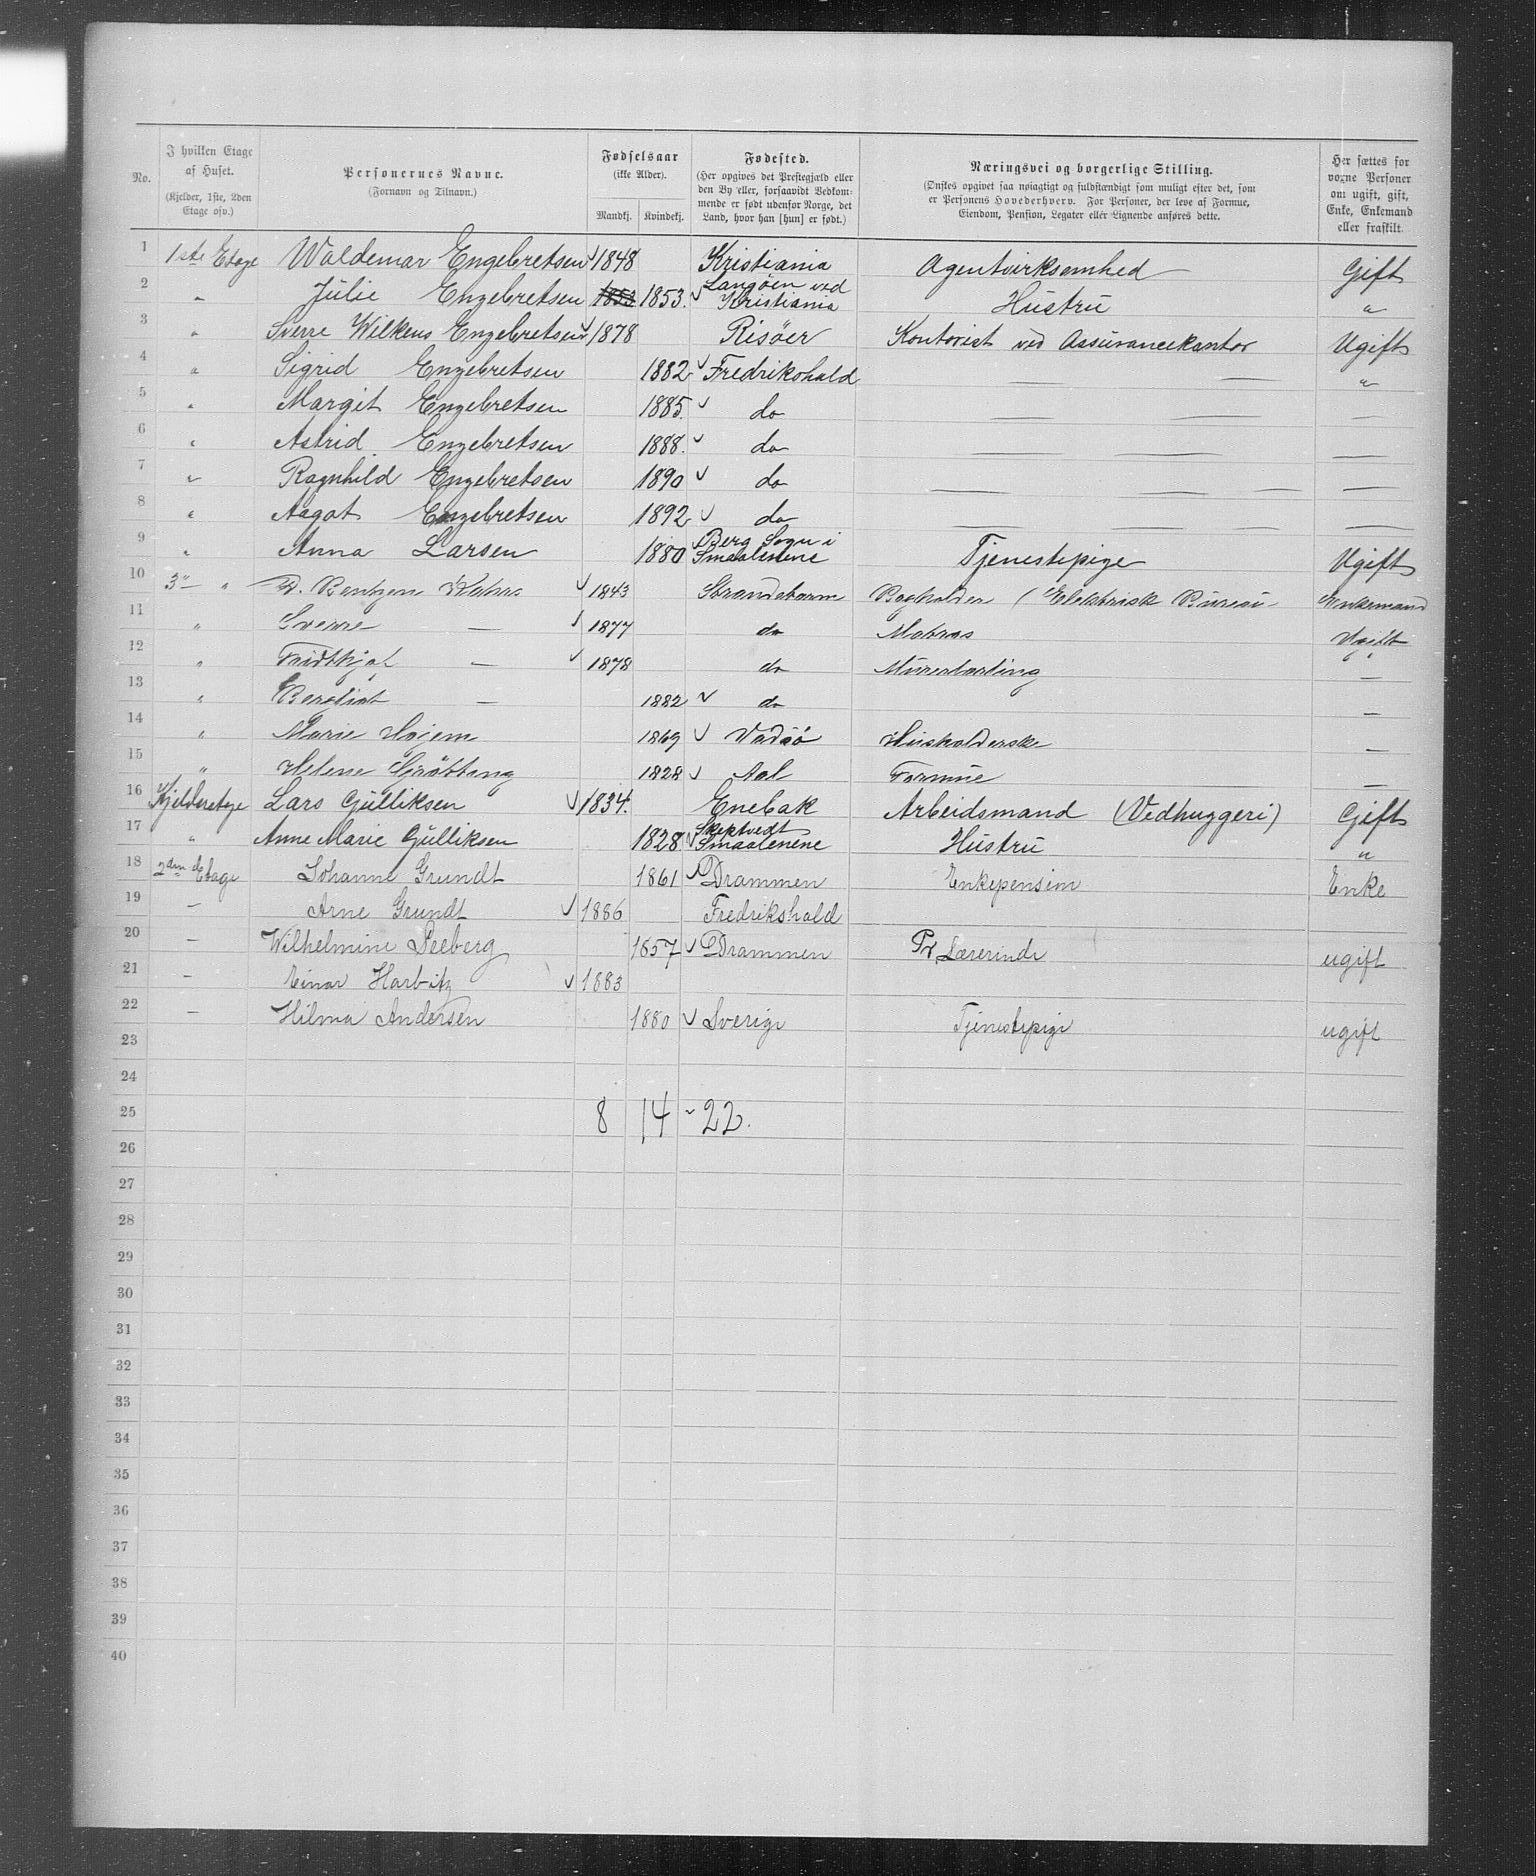 No.
I hvilken Etage af Huset.
(Kjelder, 1ste, 2den Etage osv.)
Personernes Navne.
(Fornavn og Tilnavn.)
Fødselsaar
(ikke Alder).
Mandkj. Kvindekj.
Fødested.
(Her opgives det Prestegjæld eller
den By eller, forsaavidt Vedkom-
mende er født udenfor Norge, det
Land, hvor han [hun] er født.)
Næringsvei og borgerlige Stilling.
(Ønskes opgivet saa nøiagtigt og fuldstændigt som muligt efter det, som
er Personens Hovederhverv. For Personer, der leve af Formue,
Eiendom, Pension, Legater eller Lignende anføres dette.
Her sættes for
voxne Personer
om ugift, gift,
Enke, Enkemand
eller fraskilt.
1 1ste Etage Waldemar Engebretsen 1848 Kristiania Agentvirksomhed Gift
2 " Julie Engebretsen 1853 1853. Langöen ved Kristiania Hustru "
3 " Sverre Wilkens Engebretsen 1878 Risöer Kontorist ved Assurancekontor Ugift
4 " Sigrid Engebretsen 1882 Fredrikshald — — "
5 " Margit Engebretsen 1885. do — —
6 " Astrid Engebretsen 1888. do — — —
7 " Ragnhild Engebretsen 1890 do — — — —
8 " Aagot Engebretsen 1892 do — — — —
9 " Anna Larsen 1880 Berg Sogn i Smaalenene Tjenestepige Ugift
10 3" " Bentzen 1843 Strandebarm Bogholder (Elektrisk Bureau Enkemand
11 " Sverre — 1877 do Matros Ugift
12 " Fridthjof — 1878 do Murerlærling "
13 " Bergliot — 1882 do —
14 " Marie Hojem 1869 Vadsö Husholderske —
15 " Helene 1828 Aal Formue —
16 Kjelderetage Lars Gulliksen 1834. Enebak Arbeidsmand (Vedhuggeri) Gift
17 " Anne Marie Gulliksen 1828 Skeptvedt Smaalenene Hustru "
18 2den Etage Johanne Grundt 1861 Drammen Enkepension Enke
19 — Arne Grundt 1886 Fredrikshald
20 — Wilhelmine Seeberg 1857 Drammen Pr. Lærerinde ugift
21 — Einar Harbitz 1883
22 — Hilma Andersen 1880 Sverige Tjenestepige ugift
23
24
25 8 14 - 22.
26
27
28
29
30
31
32
33
34
35
36
37
38
39
40